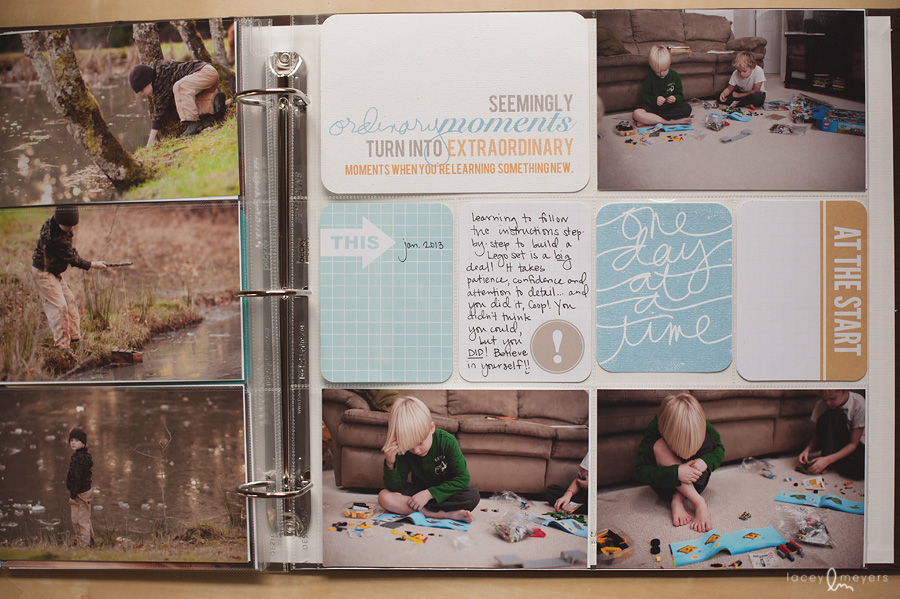 SEEMINGLY
ordinary moments
TURN INTO EXTRAORDINARY
MOMENTS WHEN YOU'RE LEARNING SOMETHING NEW.
THIS
jan. 2013
Learning to follow
the instructions step-
by-step to build a
Lego set is a big
deal! It takes
patience, confidence and
attention to detail... and
you did it, Coop! You
didn't think
you could,
but you
DID! Believe
in yourself!!
!
One
day
at a
time
AT THE START
lacey lm meyers